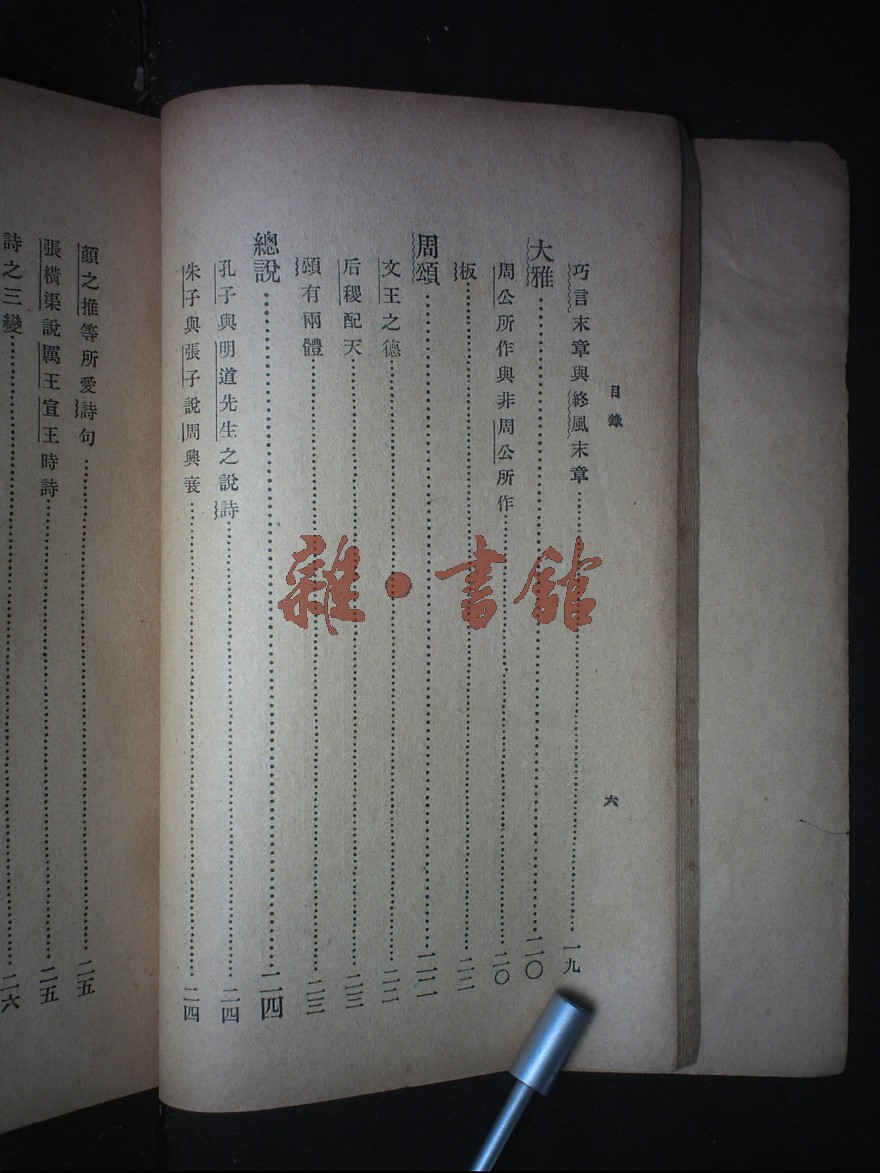 目錄
六
巧言末章與終風末章……一九
大雅……二〇
周公所作與非周公所作……二〇
板……二二
周頌……二二
文王之德……二二
后稷配天……二三
頌有兩體……二三
總說……二四
孔子與明道先生之說詩……二四
朱子與張子說周興衰……二四
顏之推等所愛詩句……二五
張橫渠說厲王宣王時詩……二五
詩之三變……二六
雜·書館